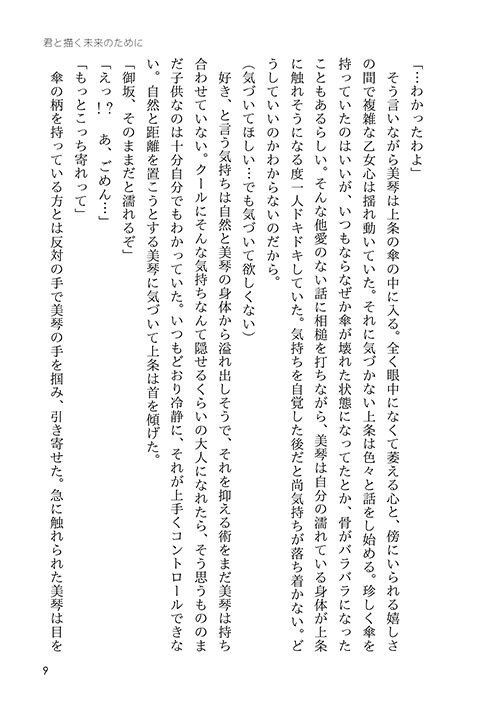 君と描く未来のために
「…わかったわよ」
　そう言いながら美琴は上条の傘の中に入る。全く眼中になくて萎える心と、傍にいられる嬉しさ
の間で複雑な乙女心は揺れ動いていた。それに気づかない上条は色々と話をし始める。珍しく傘を
持っていたのはいいが、いつもならなぜか傘が壊れた状態になってたとか、骨がバラバラになった
こともあるらしい。そんな他愛のない話に相槌を打ちながら、美琴は自分の濡れている身体が上条
に触れそうになる度一人ドキドキしていた。気持ちを自覚した後だと尚気持ちが落ち着かない。ど
うしていいのかわからないのだから。
（気づいてほしい…でも気づいて欲しくない）
　好き、と言う気持ちは自然と美琴の身体から溢れ出しそうで、それを抑える術をまだ美琴は持ち
合わせていない。クールにそんな気持ちなんて隠せるくらいの大人になれたら、そう思うもののま
だ子供なのは十分自分でもわかっていた。いつもどおり冷静に、それが上手くコントロールできな
い。自然と距離を置こうとする美琴に気づいて上条は首を傾げた。
「御坂、そのままだと濡れるぞ」
「えっ？　あ、ごめん…」
「もっとこっち寄れって」
！
　傘の柄を持っている方とは反対の手で美琴の手を掴み、引き寄せた。急に触れられた美琴は目を
9